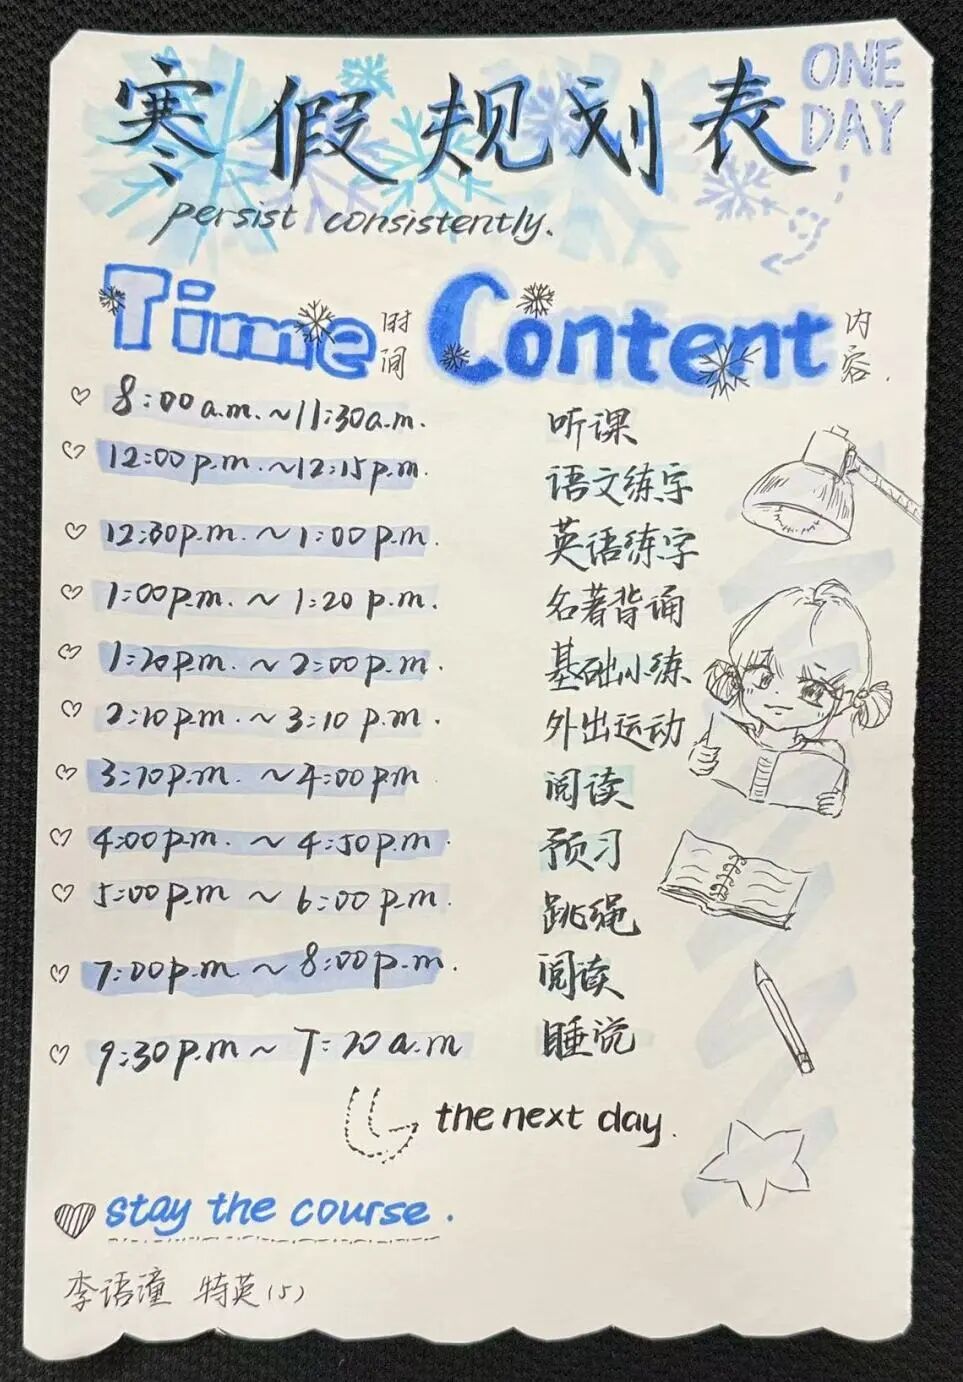 寒假规划表
ONE DAY
persist consistently.
Time 时间 Content 内容.
8:00 a.m. ~ 11:30 a.m. 听课
12:00 p.m. ~ 12:15 p.m. 语文练字
12:30 p.m. ~ 1:00 p.m. 英语练字
1:00 p.m. ~ 1:20 p.m. 名著背诵
1:20 p.m. ~ 2:00 p.m. 基础小练
2:10 p.m. ~ 3:10 p.m. 外出运动
3:10 p.m. ~ 4:00 p.m 阅读
4:00 p.m. ~ 4:50 p.m 预习
5:00 p.m ~ 6:00 p.m. 跳绳
7:00 p.m ~ 8:00 p.m. 阅读
9:30 p.m ~ 7:20 a.m 睡觉
the next day.
stay the course.
李语潼 特英(5)